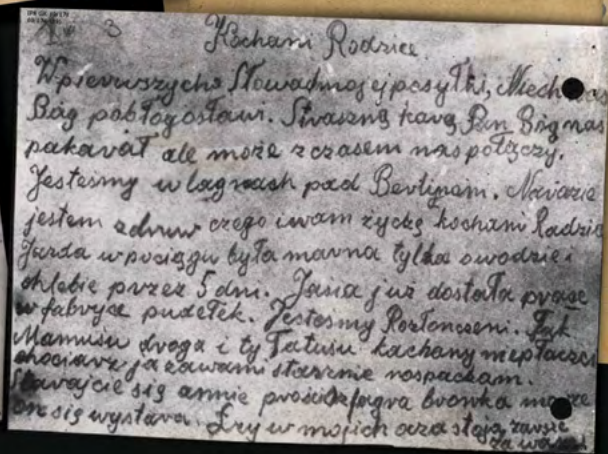 3
Kochani Rodzice
W pierwszych Słowach mojej posyłki, Niech
Bóg pobłogosławi. Straszną karą Pan Bóg nas
pakarał ale może z czasem nas połączy.
Jesteśmy w lagrach pod Berlinem. Narazie
jestem zdruw czego i wam życzę kochani Radzice
Jazda w pociągu była marna tylko o wodzie i
chlebie przez 5 dni. Jasia już dostała prace
w fabryce pudełek. Jesteśmy Rozłonczeni. Tak
Mamusu droga i ty Tatusu kachany niepłaczci
chociarz ja zawami strasznie rospackam.
Starajcie się amnie prości
on się wystara. Łzy w mojich ocza stoją zawsze
za wami